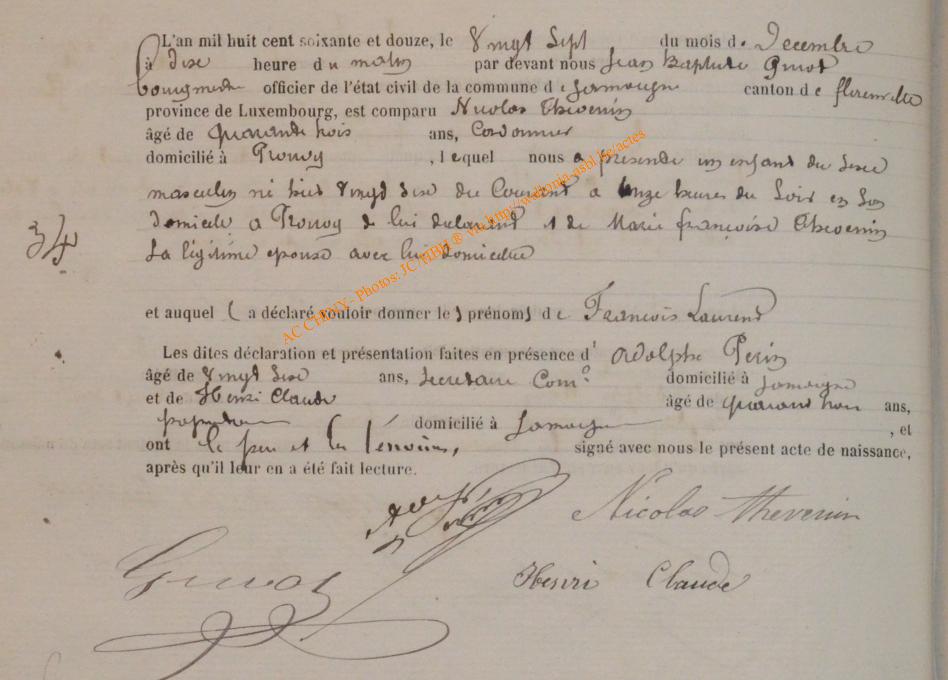 L'an mil huit cent soixante et douze, le Vingt Sept du mois de Decembre
à dix heure du matin par devant nous Jean Baptiste
bourgmestre officier de l'état civil de la commune de Jamoigne canton de florenville
province de Luxembourg, est comparu Nicolas Thevenin
âgé de quarante trois ans, Cordonnier
domicilié à Prouvy, lequel nous a presenté un enfant du Sexe
masculin né hier Vingt Six du Courant a onze heures du Soir en Son
34
domicile a Prouvy de lui declarant et de Marie françoise Thevenin
Sa légitime epouse avec lui domiciliée
et auquel il a déclaré vouloir donner les prénoms de François Laurent
Les dites déclaration et présentation faites en présence d'Adolphe Perin
âgé de Vingt Six ans, Secretaire Comᵒ domicilié à Jamoigne
et de Henri Claude âgé de quarante trois ans,
domicilié à Jamoigne, et
ont le pere et les témoins, signé avec nous le présent acte de naissance,
après qu'il leur en a été fait lecture.
Nicolas thevenin
Henri Claude
AC CHINY - Photos: JC/HBH ® via http://wallonia-asbl.be/actes